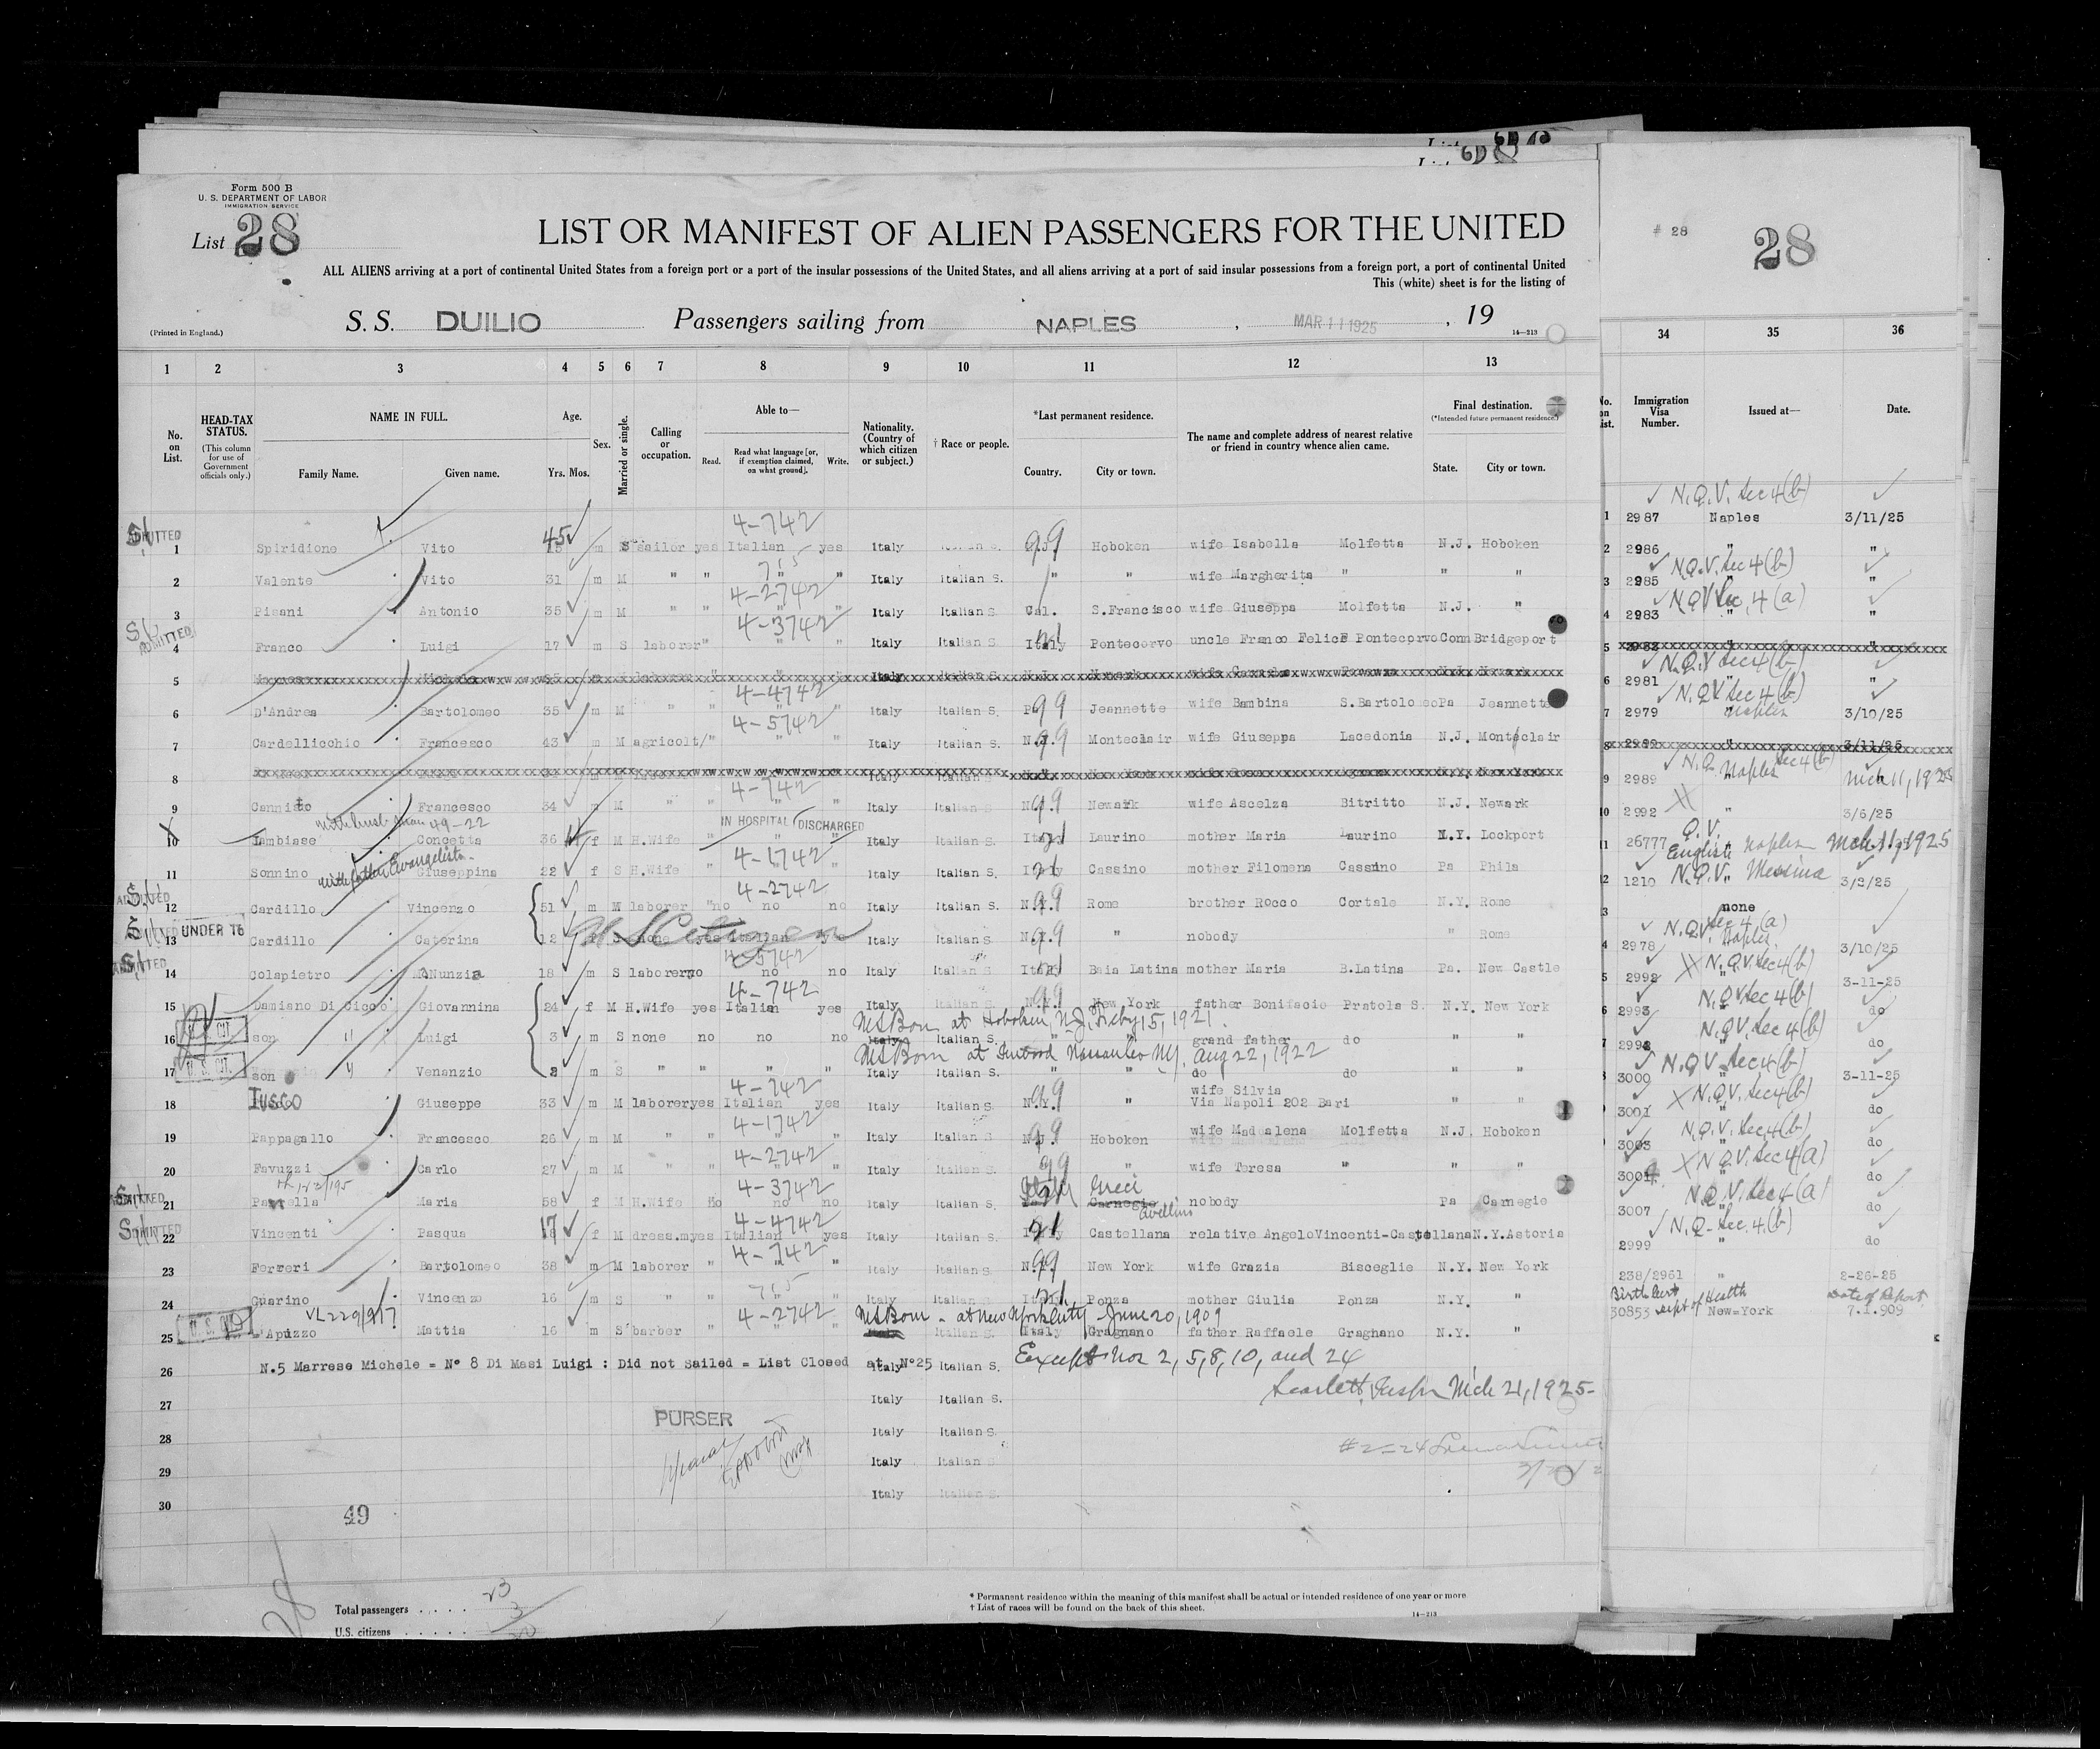 Form 500 B
U. S. DEPARTMENT OF LABOR
IMMIGRATION SERVICE
List 28
LIST OR MANIFEST OF ALIEN PASSENGERS FOR THE UNITED
ALL ALIENS arriving at a port of continental United States from a foreign port or a port of the insular possessions of the United States, and all aliens arriving at a port of said insular possessions from a foreign port, a port of continental United
This (white) sheet is for the listing of
(Printed in England.)
S. S. DUILIO Passengers sailing from NAPLES , MAR 11 1925 , 19
14—213
1 2 3 4 5 6 7 8 9 10 11 12 13
No. on List.
HEAD-TAX STATUS.
(This column for use of Government officials only.)
NAME IN FULL.
Family Name. Given name.
Age.
Yrs. Mos.
Sex.
Married or single.
Calling or occupation.
Able to—
Read. Read what language [or, if exemption claimed, on what ground]. Write.
Nationality. (Country of which citizen or subject.)
† Race or people.
*Last permanent residence.
Country. City or town.
The name and complete address of nearest relative or friend in country whence alien came.
Final destination.
(*Intended future permanent residence.)
State. City or town.
4-742
ADMITTED 1 Spiridione Vito 45 m sailor yes Italian yes Italy 99 Hoboken wife Isabella Molfetta N.J. Hoboken
715
2 Valente Vito 31 m M " " " " Italy Italian S. " " wife Margherita " " "
4-2742
3 Pisani Antonio 35 m M " " " " Italy Italian S. Cal. S.Francisco wife Giuseppa Molfetta N.J. "
4-3742
ADMITTED 4 Franco Luigi 17 m S laborer " " " Italy Italian S. Italy Pontecorvo uncle Franco Felice Pontecorvo Conn Bridgeport
5 Italy
4-4742
6 D'Andrea Bartolomeo 35 m M " " " " Italy Italian S. Pa 99 Jeannette wife Bambina S.Bartolomeo Pa Jeannette
4-5742
7 Cardellicchio Francesco 43 m M agricolt/" " " Italy Italian S. 99 Montclair wife Giuseppa Lacedonia N.J. Montclair
8
4-742
9 Cannisto Francesco 34 m M " " " " Italy Italian N.J. 99 Newark wife Ascelza Bitritto N.J. Newark
49-22 IN HOSPITAL / DISCHARGED
X 10 Iambiase Concetta 36 f M H.Wife " " " Italy Italian S. Italy Laurino mother Maria Laurino N.Y. Lockport
with father Evangelista 4-1742
11 Sonnino Giuseppina 22 f S H.Wife " " " Italy Italian S. Italy Cassino mother Filomena Cassino Pa Phila
4-2742
ADMITTED 12 Cardillo Vincenzo 51 m M laborer "no no no Italy Italian S. N.Y. 99 Rome brother Rocco Cortale N.Y. Rome
US Citizen
UNDER 16 13 Cardillo Caterina 12 S none yes Italian yes Italy Italian S. N.Y. 99 " nobody " Rome
4-5742
ADMITTED 14 Colapietro Nunzia 18 m S laborer no no no Italy Italian S Italy Baia Latina mother Maria B.Latina Pa. New Castle
4-742
15 Damiano Di Cicco Giovannina 24 f M H.Wife yes Italian yes Italy Italian S. N.Y. 99 New York father Bonifacio Pratola S. N.Y. New York
US Born at Hoboken, N.J. Feby 15, 1921.
U. S. CIT. 16 son " Luigi 3 m S none no no no Italy Italian S. " grand father do " "
US Born at Nassau Co NY. Aug 22, 1922
U. S. CIT. 17 son " Venanzio 2 m S " " " " Italy Italian S. " " do do " "
4-742
wife Silvia
18 Tusco Giuseppe 33 m M laborer yes Italian yes Italy Italian S. N.Y. 99 " Via Napoli 202 Bari " "
4-1742
19 Pappagallo Francesco 26 m M " " " " Italy Italian S N.J. 99 Hoboken wife Maddalena Molfetta N.J. Hoboken
4-2742
20 Favuzzi Carlo 27 m M " " " " Italy Italian S. 99 " wife Teresa " " "
4-3742
ADMITTED 21 Maria 58 f M H.Wife No no no Italy Italian S. Italy Carnegie Greci Avellino nobody Pa Carnegie
4-4742
ADMITTED 22 Vincenti Pasqua 17 f M dress.m yes Italian yes Italy Italian S. Italy Castellana relative Angelo Vincenti-Castellana N.Y. Astoria
4-742
23 Ferreri Bartolomeo 38 m M laborer " " " Italy Italian S. N.Y. 99 New York wife Grazia Bisceglie N.Y. New York
715
24 Guarino Vincenzo 16 m S " " " " Italy Italian S. Italy Ponza mother Giulia Ponza N.Y. "
VL 229/917 4-2742 US Born - at New York City - June 20, 1909
U. S. CIT. 25 D'Apuzzo Mattia 16 m S barber " " " Italian S. Italy Gragnano father Raffaele Gragnano N.Y. "
26 N.5 Marrese Michele = N° 8 Di Masi Luigi : Did not sailed = List Closed at N°25 Italy Italian S. Except Nos 2, 5, 8, 10, and 24
27 Italy Italian S. Scarlett, Insp Mch 21, 1925-
28 PURSER Italy Italian S.
29 Italy Italian S
30 Italy Italian S.
49
Total passengers . . . . . 23
U.S. citizens . . . . . . 3
* Permanent residence within the meaning of this manifest shall be actual or intended residence of one year or more.
† List of races will be found on the back of this sheet.
14—213
# 28 28
34 35 36
No. on List. Immigration Visa Number. Issued at— Date.
N.Q.V. Sec 4(b)
1 2987 Naples 3/11/25
2 2986 " "
N.Q.V. Sec 4(b)
3 2985 " "
N.Q.V Sec. 4(a)
4 2983 " "
5
N.Q.V Sec 4(b)
6 2981 " "
N.Q.V Sec 4(b)
7 2979 Naples 3/10/25
8 3/11/25
N.Q. Sec 4(b)
9 2989 Naples Mch 11, 1925
10 2992 " 3/6/25
Q.V.
11 26777 English Naples Mch 11, 1925
12 1210 N.Q.V. Messina 3/2/25
3 none
N.Q.V. Sec 4(a)
4 2978 Naples 3/10/25
N.Q.V. Sec 4(b)
5 2992 " 3-11-25
N.Q.V Sec 4(b)
6 2993 " do
N.Q.V. Sec 4(b)
7 2994 do
N.Q.V. Sec 4(b)
3000 " 3-11-25
N.Q.V. Sec 4(b)
3001 " do
N.Q.V. Sec. 4(b)
3003 " do
N.Q.V. Sec 4(a)
3004 do
N.Q.V. Sec 4(a)
3007 " do
N.Q. Sec. 4.(b)
2999 " do
238/2961 " 2-26-25
Birth Cert Dept of Health Date of Report
30853 New=York 7.1.909